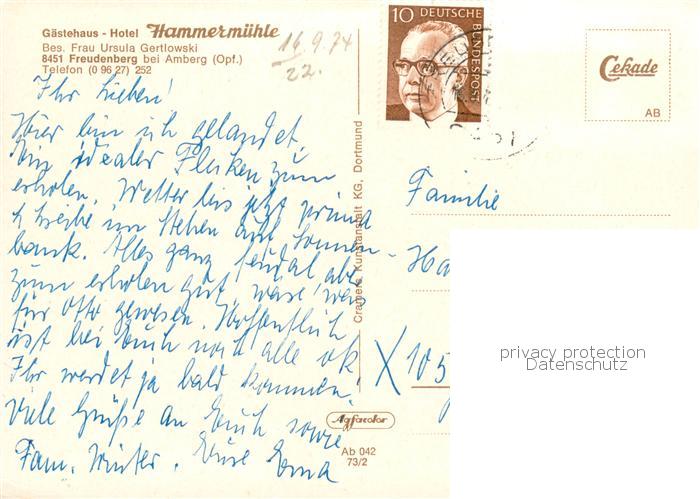 Gästehaus - Hotel Hammermühle
Bes. Frau Ursula Gertlowski
8451 Freudenberg bei Amberg (Opf.)
Telefon (0 96 27) 252
16.9.74
22.
10 DEUTSCHE
BUNDESPOST
Cekade
AB
Ihr Lieben!
Hier bin ich gelandet.
Ein idealer Flecken zum
erholen. Wetter bis jetzt prima
schreibe im Stehen auf Sonnen-
bank. Alles ganz feudal aber
zum erholen gut, wäre was
für Otto gewesen. Hoffentlich
ist bei Euch noch alle ok
Ihr werdet ja bald kommen!
Viele Grüße an Euch sowie
Fam. Winter. Eure Erna
Cramers Kunstanstalt KG, Dortmund
Familie
Ha
X 105
privacy protection
Datenschutz
Agfacolor
Ab 042
73/2